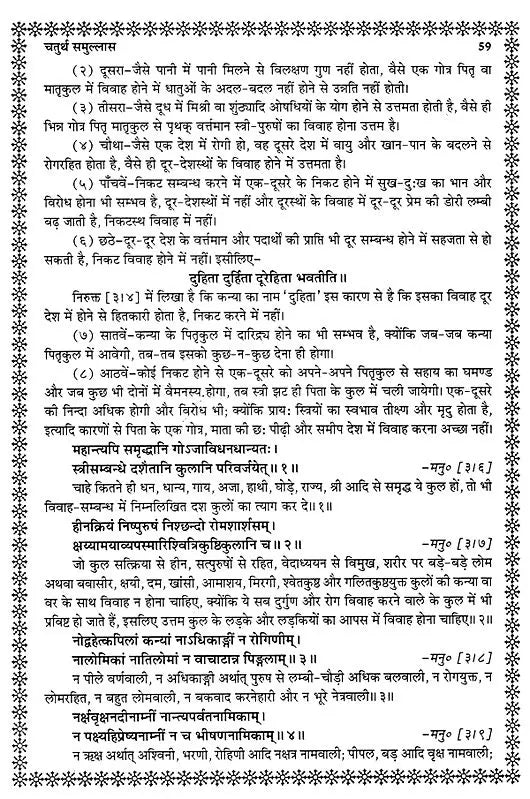 चतुर्थ समुल्लास ५९
(२) दूसरा–जैसे पानी में पानी मिलने से विलक्षण गुण नहीं होता, वैसे एक गोत्र पितृ वा
मातृकुल में विवाह होने में धातुओं के अदल-बदल नहीं होने से उन्नति नहीं होती।
(३) तीसरा–जैसे दूध में मिश्री वा शुंठ्यादि ओषधियों के योग होने से उत्तमता होती है, वैसे ही
भिन्न गोत्र पितृ मातृकुल से पृथक् वर्त्तमान स्त्री-पुरुषों का विवाह होना उत्तम है।
(४) चौथा–जैसे एक देश में रोगी हो, वह दूसरे देश में वायु और खान-पान के बदलने से
रोगरहित होता है, वैसे ही दूर-देशस्थों के विवाह होने में उत्तमता है।
(५) पाँचवें–निकट सम्बन्ध करने में एक-दूसरे के निकट होने में सुख-दुःख का भान और
विरोध होना भी सम्भव है, दूर-देशस्थों में नहीं और दूरस्थों के विवाह में दूर-दूर प्रेम की डोरी लम्बी
बढ़ जाती है, निकटस्थ विवाह में नहीं।
(६) छठे–दूर-दूर देश के वर्त्तमान और पदार्थों की प्राप्ति भी दूर सम्बन्ध होने में सहजता से हो
सकती है, निकट विवाह होने में नहीं। इसीलिए–
दुहिता दुर्हिता दूरेहिता भवतीति॥
निरुक्त [३।४] में लिखा है कि कन्या का नाम 'दुहिता' इस कारण से है कि इसका विवाह दूर
देश में होने से हितकारी होता है, निकट करने में नहीं।
(७) सातवें–कन्या के पितृकुल में दारिद्र्य होने का भी सम्भव है, क्योंकि जब-जब कन्या
पितृकुल में आवेगी, तब-तब इसको कुछ-न-कुछ देना ही होगा।
(८) आठवें–कोई निकट होने से एक-दूसरे को अपने-अपने पितृकुल से सहाय का घमण्ड
और जब कुछ भी दोनों में वैमनस्य होगा, तब स्त्री झट ही पिता के कुल में चली जायेगी। एक-दूसरे
की निन्दा अधिक होगी और विरोध भी; क्योंकि प्रायः स्त्रियों का स्वभाव तीक्ष्ण और मृदु होता है,
इत्यादि कारणों से पिता के एक गोत्र, माता की छः पीढ़ी और समीप देश में विवाह करना अच्छा नहीं।
महान्त्यपि समृद्धानि गोऽजाविधनधान्यतः।
स्त्रीसम्बन्धे दशैतानि कुलानि परिवर्जयेत्॥१॥ –मनु० [३।६]
चाहे कितने ही धन, धान्य, गाय, अजा, हाथी, घोड़े, राज्य, श्री आदि से समृद्ध ये कुल हों, तो भी
विवाह-सम्बन्ध में निम्नलिखित दश कुलों का त्याग कर दे॥१॥
हीनक्रियं निष्पुरुषं निश्छन्दो रोमशार्शसम्।
क्षय्यामयाव्यपस्मारिश्वित्रिकुष्ठिकुलानि च॥२॥ –मनु० [३।७]
जो कुल सत्क्रिया से हीन, सत्पुरुषों से रहित, वेदाध्ययन से विमुख, शरीर पर बड़े-बड़े लोम
अथवा बवासीर, क्षयी, दम, खांसी, आमाशय, मिरगी, श्वेतकुष्ठ और गलितकुष्ठयुक्त कुलों की कन्या वा
वर के साथ विवाह न होना चाहिए, क्योंकि ये सब दुर्गुण और रोग विवाह करने वाले के कुल में भी
प्रविष्ट हो जाते हैं, इसलिए उत्तम कुल के लड़के और लड़कियों का आपस में विवाह होना चाहिए॥२॥
नोद्वहेत्कपिलां कन्यां नाऽधिकाङ्गीं न रोगिणीम्।
नालोमिकां नातिलोमां न वाचाटान्न पिङ्गलाम्॥३॥ –मनु० [३।८]
न पीले वर्णवाली, न अधिकाङ्गी अर्थात् पुरुष से लम्बी-चौड़ी अधिक बलवाली, न रोगयुक्त, न
लोमरहित, न बहुत लोमवाली, न बकवाद करनेहारी और न भूरे नेत्रवाली॥३॥
नर्क्षवृक्षनदीनाम्नीं नान्त्यपर्वतनामिकाम्।
न पक्ष्यहिप्रेष्यनाम्नीं न च भीषणनामिकाम्॥४॥ –मनु० [३।९]
न ऋक्ष अर्थात् अश्विनी, भरणी, रोहिणी आदि नक्षत्र नामवाली; पीपल, बड़ आदि वृक्ष नामवाली;